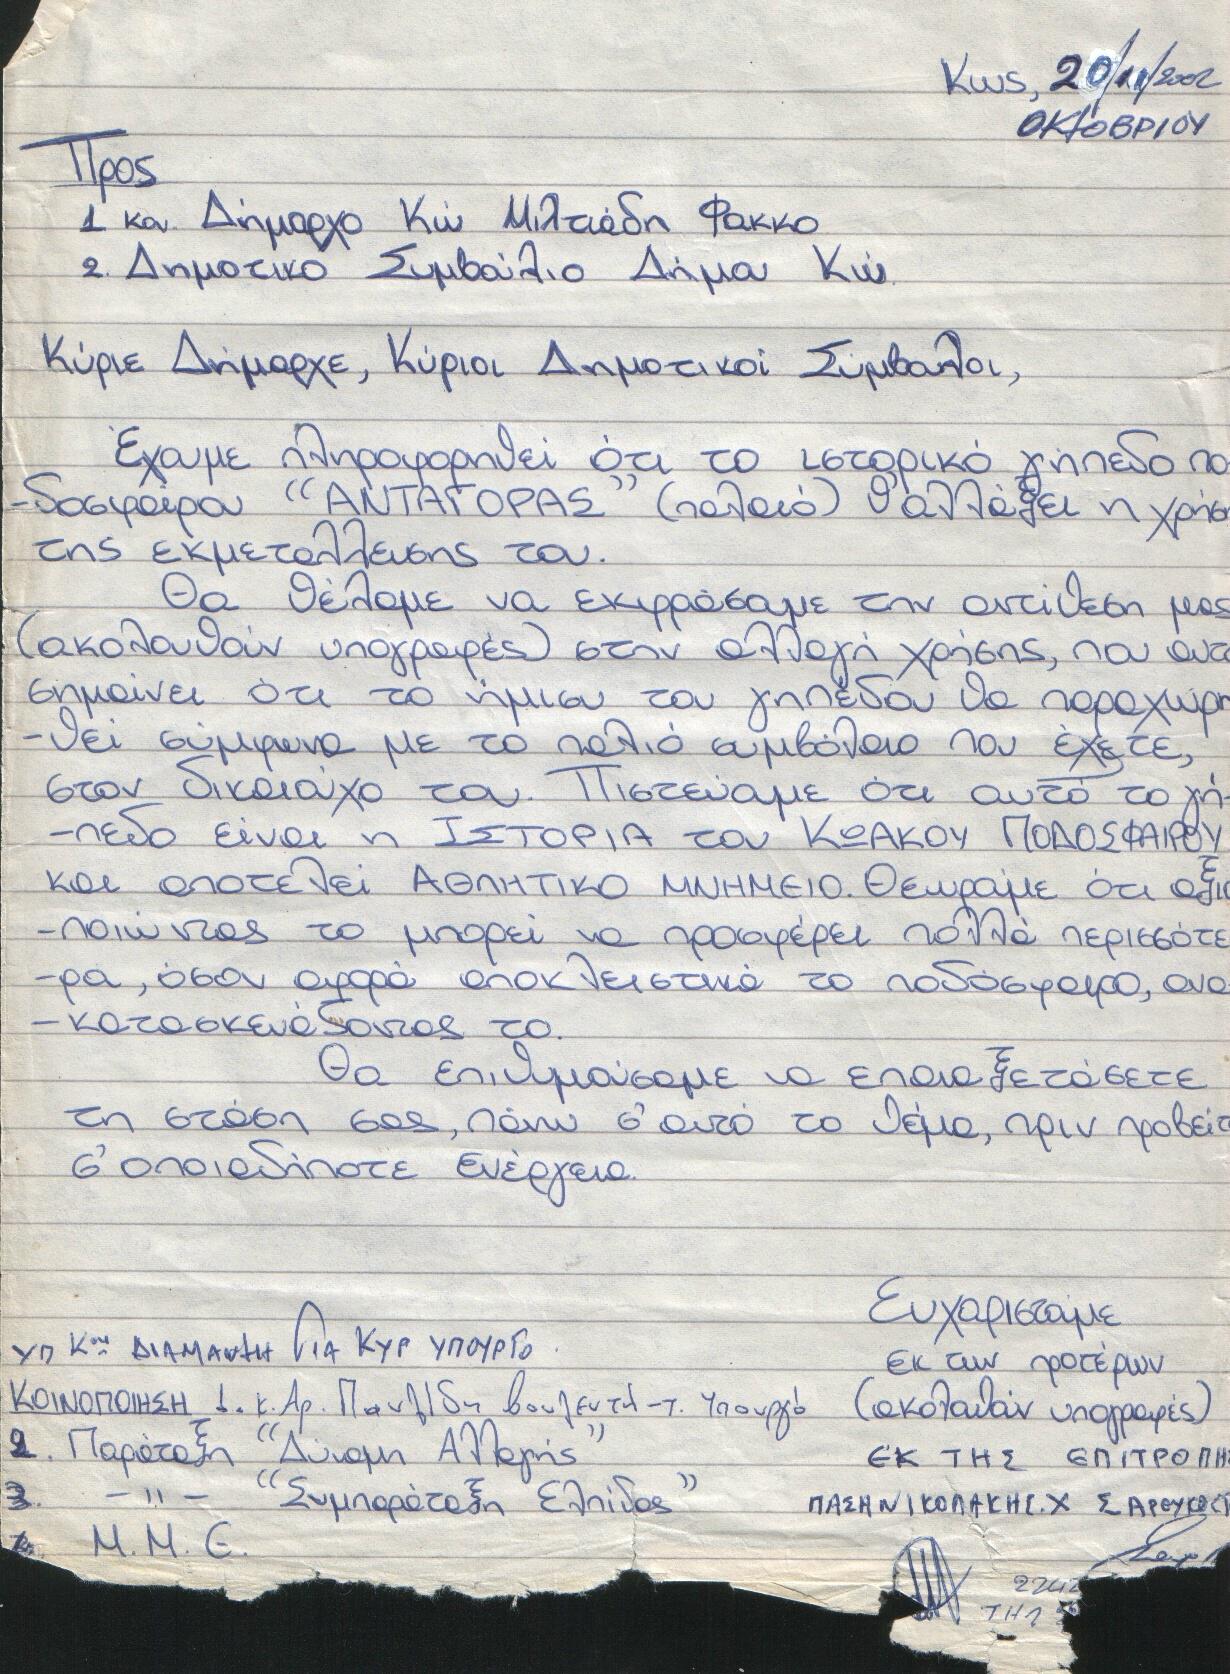 Κως, 20/11/2002
ΟΚΤΟΒΡΙΟΥ
Προς
1 κον Δήμαρχο Κω Μιλτιάδη Φάκκο
2. Δημοτικο Συμβούλιο Δήμου Κω
Κύριε Δήμαρχε, Κύριοι Δημοτικοί Σύμβουλοι,
Έχουμε πληροφορηθεί ότι το ιστορικό γήπεδο πο-
-δοσφαίρου "ΑΝΤΑΓΟΡΑΣ" (παλαιό) θ'αλλάξει η χρήση
της εκμετάλλευσης του.
Θα θέλαμε να εκφράσουμε την αντίθεση μας
(ακολουθούν υπογραφές) στην αλλαγή χρήσης, που αυτό
σημαίνει ότι το ήμισυ του γηπέδου θα παραχωρη
-θεί σύμφωνα με το παλιό συμβόλαιο που έχετε,
στον δικαιούχο του. Πιστεύουμε ότι αυτό το γή-
-πεδο είναι η ΙΣΤΟΡΙΑ του ΚΩΑΚΟΥ ΠΟΔΟΣΦΑΙΡΟΥ
και αποτελεί ΑΘΛΗΤΙΚΟ ΜΝΗΜΕΙΟ. Θεωρούμε ότι αξιο
-ποιώντας το μπορεί να προσφέρει πολλά περισσότε
-ρα, όσον αφορά αποκλειστικά το ποδόσφαιρο, ανα
-κατασκευάζοντας το.
Θα επιθυμούσαμε να επαναξετάσετε
τη στάση σας, πάνω σ'αυτό το θέμα, πριν προβείτε
σ'οποιαδήποτε ενέργεια.
Ευχαριστούμε
εκ των προτέρων
(ακολουθούν υπογραφές)
ΕΚ ΤΗΣ ΕΠΙΤΡΟΠΗΣ
ΥΠ Κον ΔΙΑΜΑΝΤΗ ΓΙΑ ΚΥΡ ΥΠΟΥΡΓΟ.
ΚΟΙΝΟΠΟΙΗΣΗ 1. κ. Αρ. Παυλίδη βουλευτή-τ. Υπουργό
2. Παράταξη "Δύναμη Αλλαγής"
3. -〃- "Συμπαράταξη Ελπίδας"
Μ.Μ.Ε.
ΤΗΛ